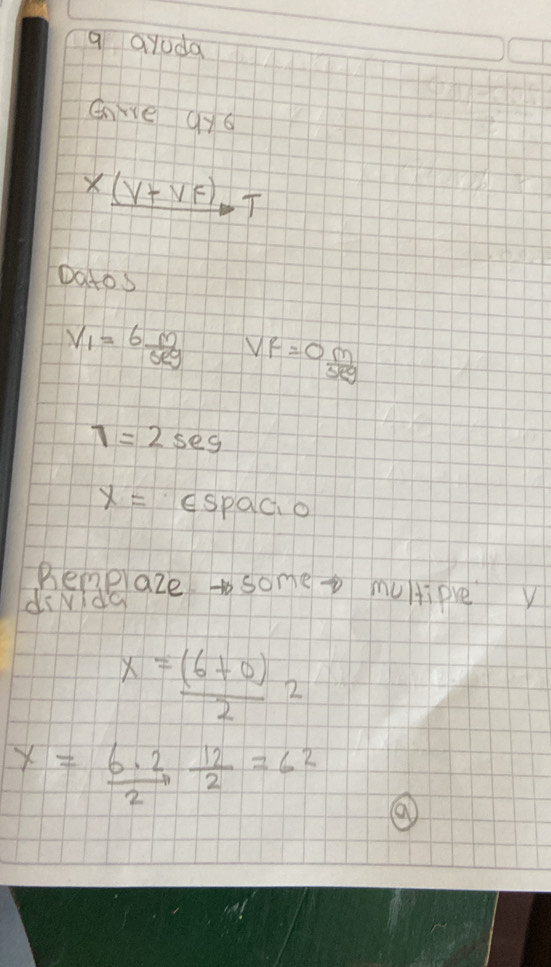 9 ayuda
Entre 4 y 6
X (V + VF) T
Datos
V1 = 6 m/seg VF = 0 m/seg
T = 2 seg
X = espacio
Remplaze → some → multiple y
divida
X = (6+0)/2 2
X = 6.2/2 12/2 = 6 2
a